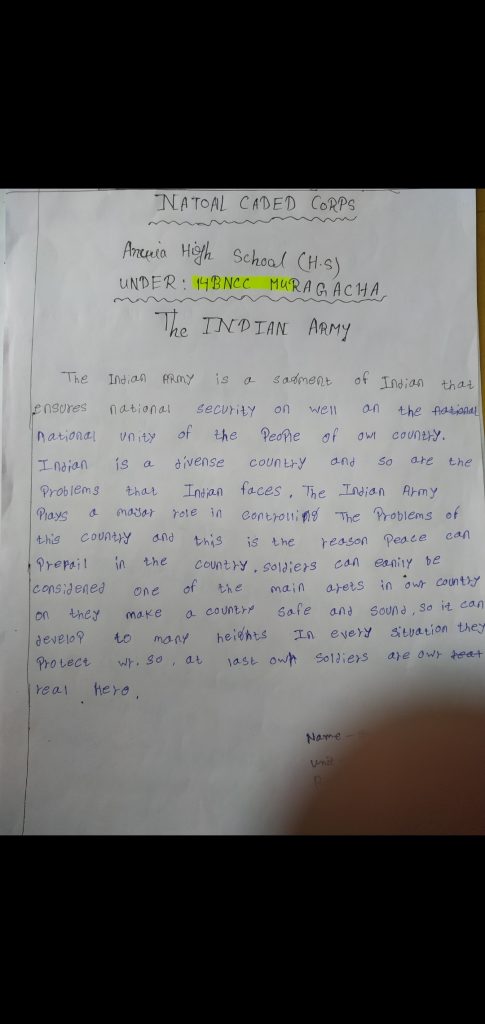 NATOAL CADED CORPS
High School (H.S)
UNDER: 14BNCC MURAGACHA
The INDIAN ARMY
The Indian ARMY is a sadment of Indian that
ensures national security on well an the national
national unity of the People of owl country.
Indian is a divense country and so are the
Problems that Indian faces. The Indian Army
Plays a major role in controlling The Problems of
this country and this is the reason Peace can
Prepail in the country. soldiers can eanily be
considened one of the main arets in owr country
on they make a country safe and sound, so it can
develop to many heights In every situation they
Protect wr. so, at last own soldiers are owr reat
real Hero.
Name -
Unit